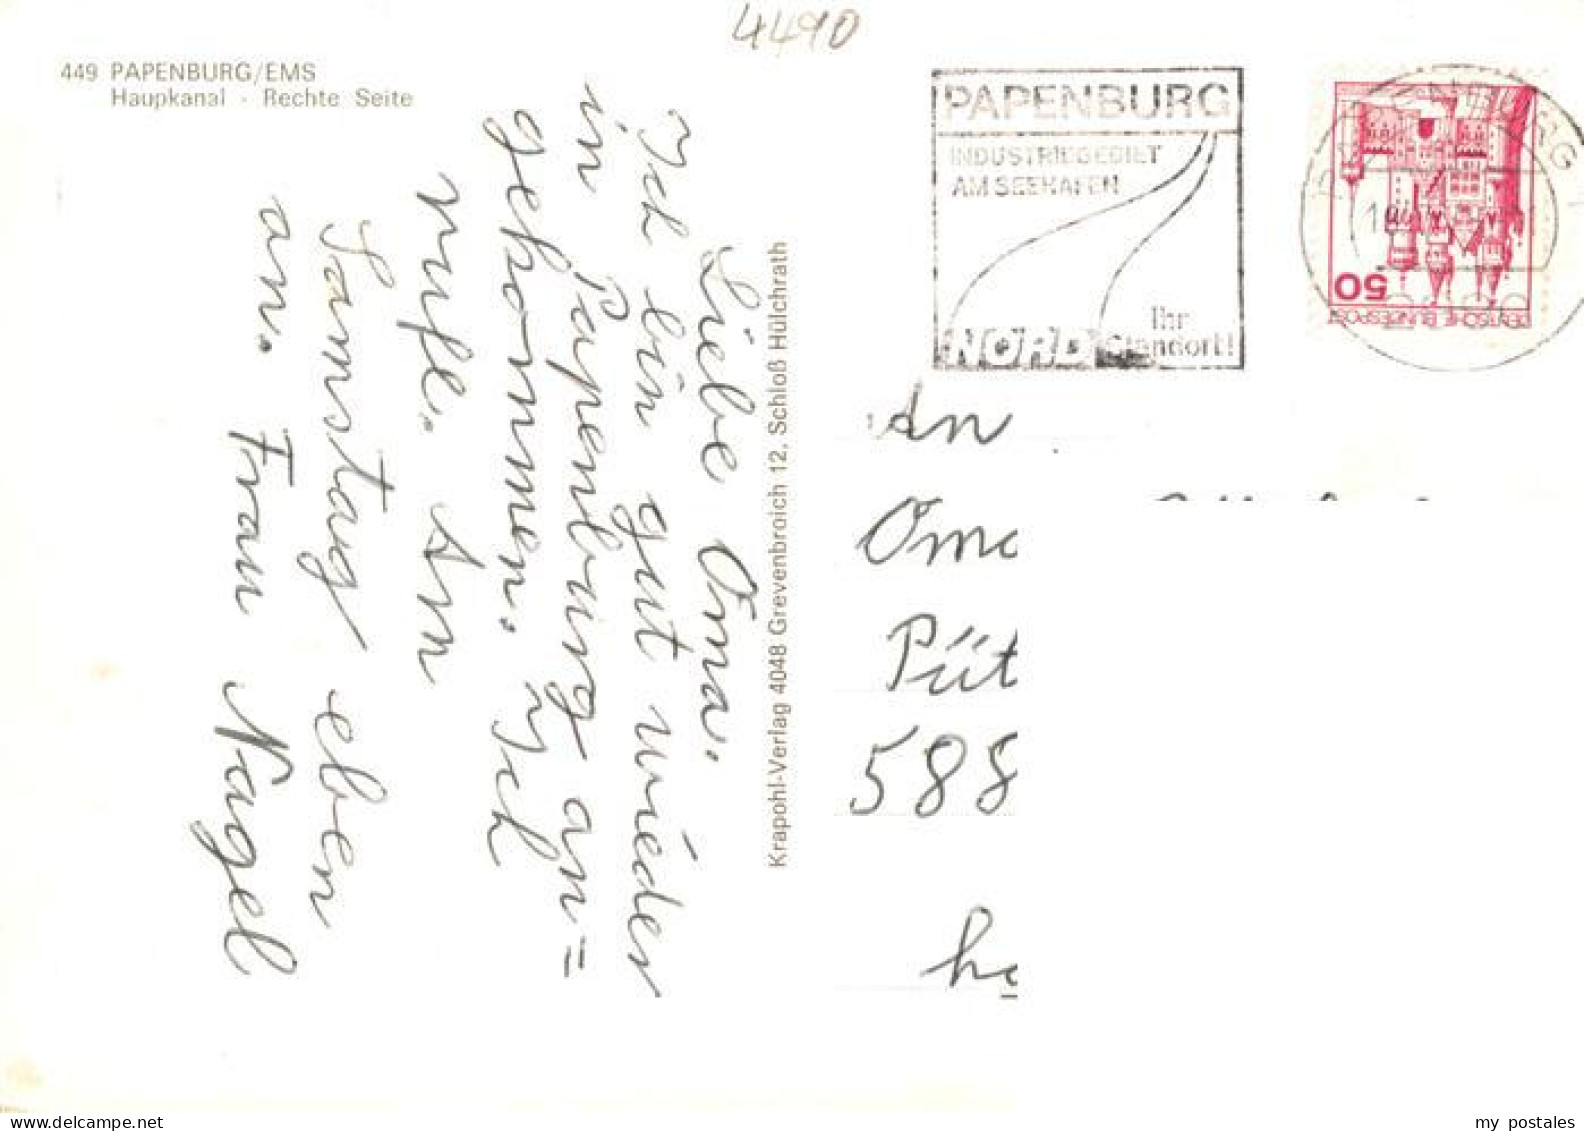 4490
449 PAPENBURG/EMS
Haupkanal - Rechte Seite
Liebe Oma.
Ich bin gut wieder
in Papenburg an=
gekommen. Ich
mußt. Am
Samstag eben
an. Frau Nagel
Krapohl-Verlag 4048 Grevenbroich 12, Schloß Hülchrath
PAPENBURG
INDUSTRIEGEBIET
AM SEEHAFEN
NORD
Ihr
Standort!
50
DEUTSCHE BUNDESPOST
An
Oma
Püt
588
my postales